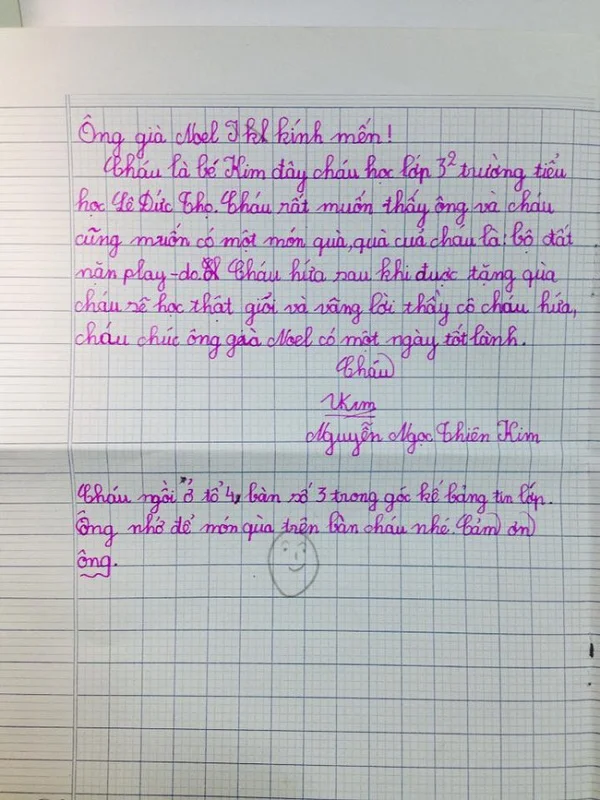 Ông già Noel kính mến!
Cháu là bé Kim đây cháu học lớp 3² trường tiểu
học Lê Đức Thọ. Cháu rất muốn thấy ông và cháu
cũng muốn có một món quà, quà cuả cháu là bộ đất
nặn play-do. Cháu hứa sau khi được tặng qùa
cháu sẽ học thật giỏi và vâng lời thầy cô cháu hứa,
cháu chúc ông già Noel có một ngày tốt lành.
Cháu
Kim
Nguyễn Ngọc Thiên Kim
Cháu ngồi ở tổ 4, bàn số 3 trong góc kế bảng tin lớp.
Ông nhớ để món qùa trên bàn cháu nhé. Cảm ơn
ông.